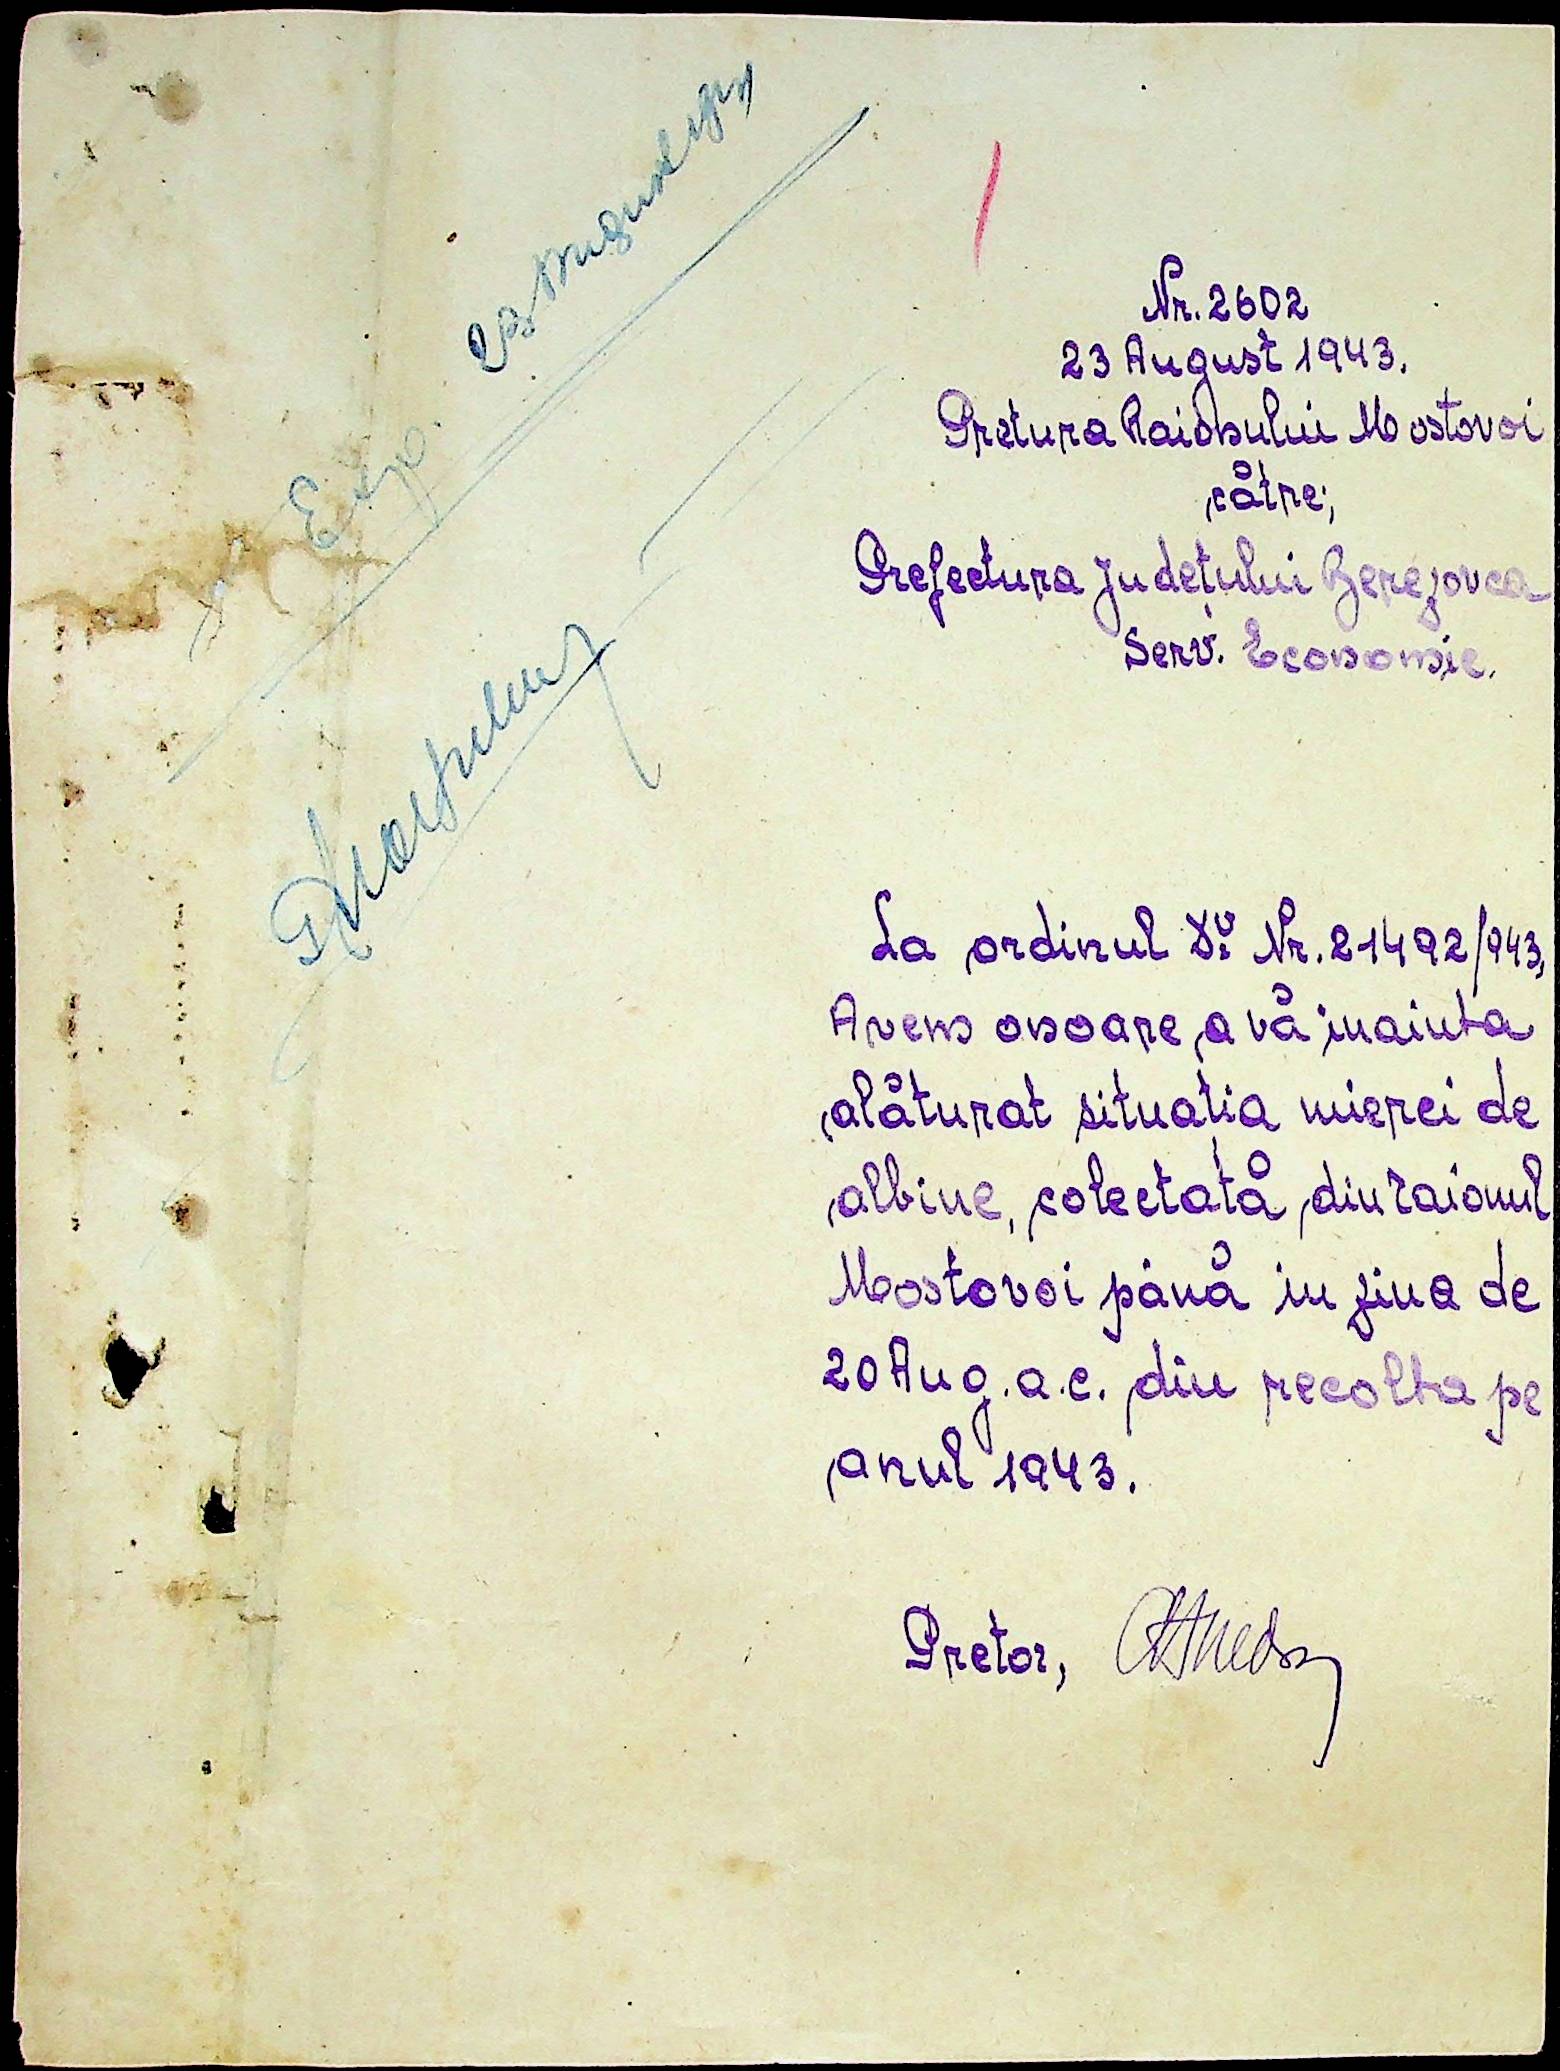 Nr. 2602
23 August 1943.
Pretura Raionului Mostovoi
către;
Prefectura Județului Berezovca
Serv. Economic.
La ordinul Dv. Nr. 21492/943,
Avem onoare a vă inainta
alăturat situatia mierei de
albine, colectată din raionul
Mostovoi până in ziua de
20 Aug. a.c. din recolta pe
anul 1943.
Pretor,